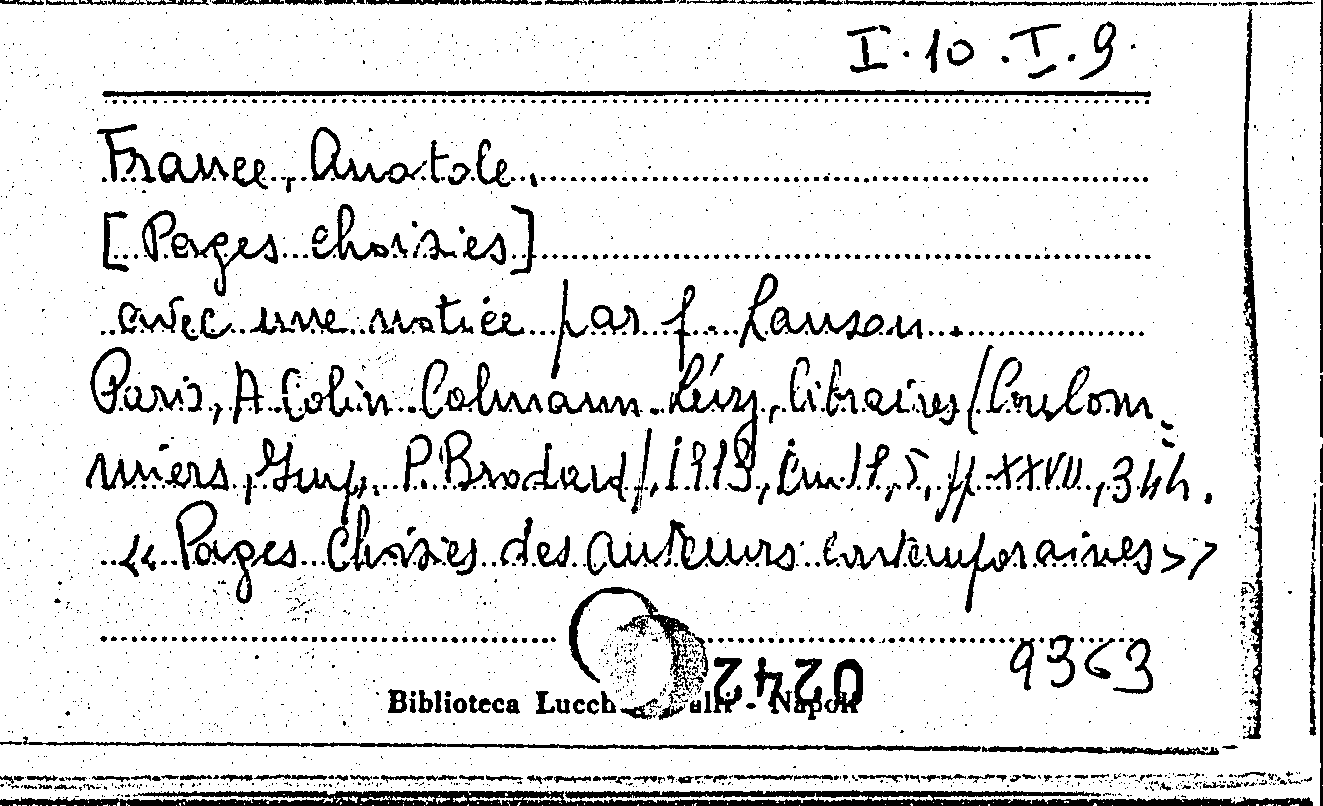 I.10.I.9.
France, Anatole.
[Pages choisies]
avec une notice par f. Lanson.
Paris, A. Colin. Calmann. Lévy, libraires / Coulom=
miers, Imp. P. Brodard /, 1913, cm. 17,5, pp. XXVII, 344.
<< Pages choisies des auteurs contemporaines >>
9363
0242
Biblioteca Napoli